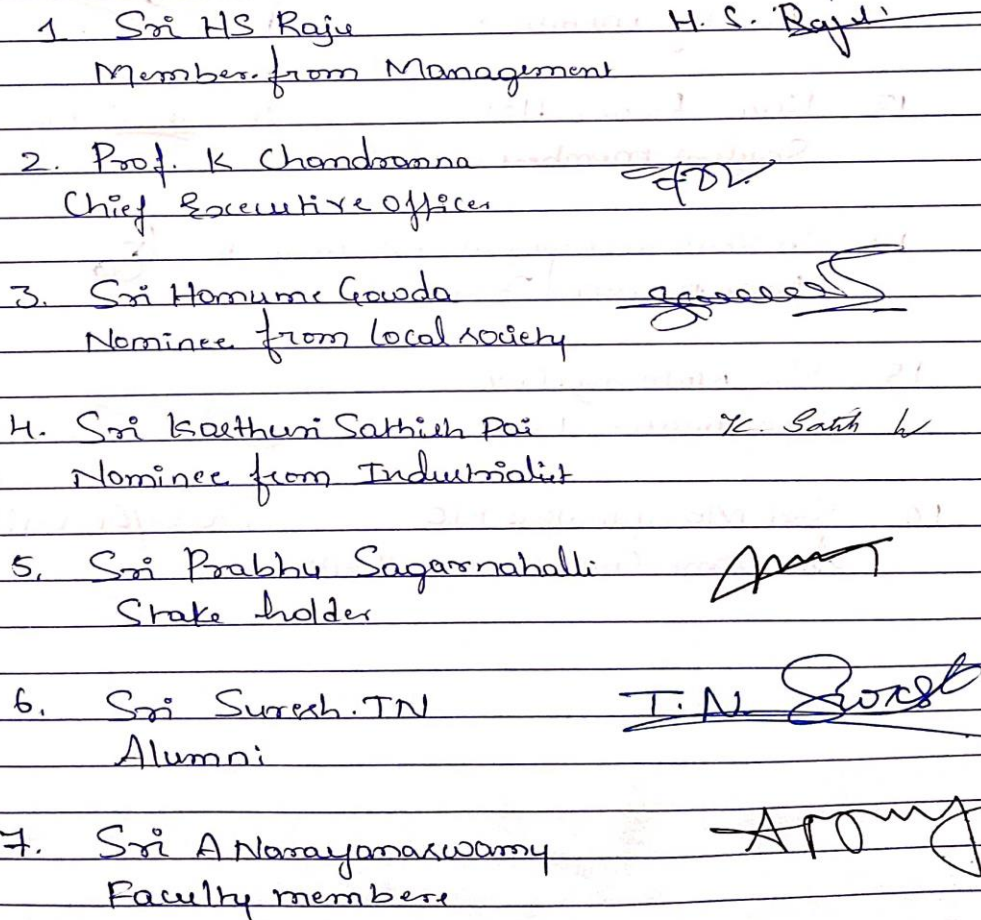 1 Sri HS Raju H. S. Raju
Member from Management
2. Prof. K Chandranna
Chief Executive Officer
3. Sri Gowda
Nominee from local society
4. Sri Kasthuri Sathish Pai K. Satish
Nominee from Industrialist
5. Sri Prabhu Sagarnahalli
Stake holder
6. Sri Suresh. TN T. N. Suresh
Alumni
7. Sri A Narayanaswamy
Faculty members